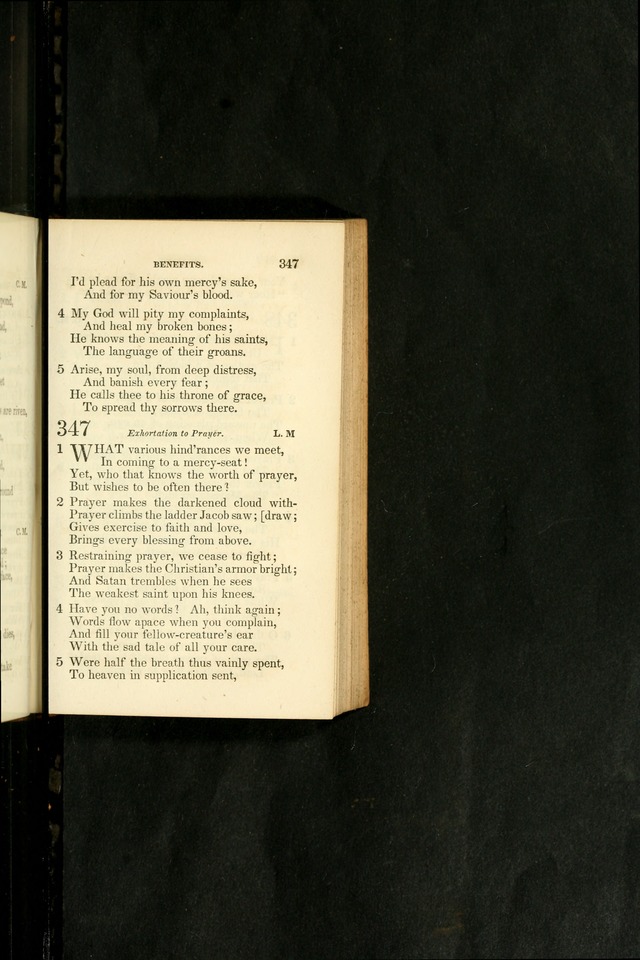 C. M.
are riven,
C. M.
BENEFITS. 347
I'd plead for his own mercy's sake,
And for my Saviour's blood.
4 My God will pity my complaints,
And heal my broken bones;
He knows the meaning of his saints,
The language of their groans.
5 Arise, my soul, from deep distress,
And banish every fear;
He calls thee to his throne of grace,
To spread thy sorrows there.
347 Exhortation to Prayer. L. M
1 WHAT various hind'rances we meet,
In coming to a mercy-seat!
Yet, who that knows the worth of prayer,
But wishes to be often there?
2 Prayer makes the darkened cloud with-
Prayer climbs the ladder Jacob saw; [draw;
Gives exercise to faith and love,
Brings every blessing from above.
3 Restraining prayer, we cease to fight;
Prayer makes the Christian's armor bright;
And Satan trembles when he sees
The weakest saint upon his knees.
4 Have you no words? Ah, think again;
Words flow apace when you complain,
And fill your fellow-creature's ear
With the sad tale of all your care.
5 Were half the breath thus vainly spent,
To heaven in supplication sent,